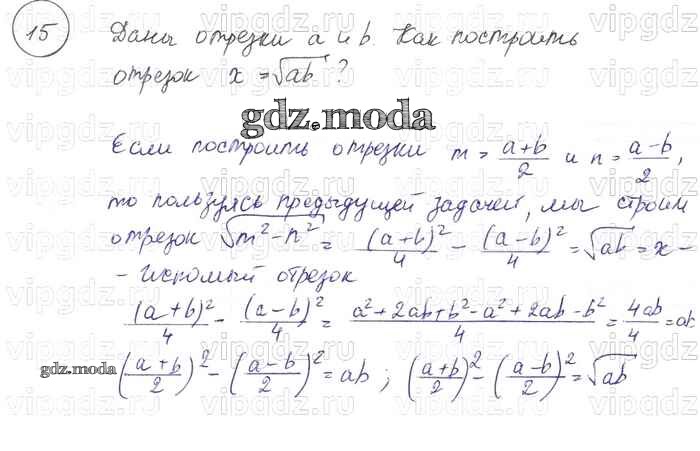 15 Даны отрезки a и b. Как построить
отрезок x = √ab ?
gdz.moda
Если построить отрезки m = (a+b)/2 и n = (a-b)/2,
то пользуясь предыдущей задачей, мы строим
отрезок √(m²-n²) = (a+b)²/4 - (a-b)²/4 = √ab = x -
- Искомый отрезок
(a+b)²/4 - (a-b)²/4 = (a²+2ab+b²-a²+2ab-b²)/4 = 4ab/4 = ab
gdz.moda ((a+b)/2)² - ((a-b)/2)² = ab ; ((a+b)/2)² - ((a-b)/2)² = √ab
vipgdz.ru